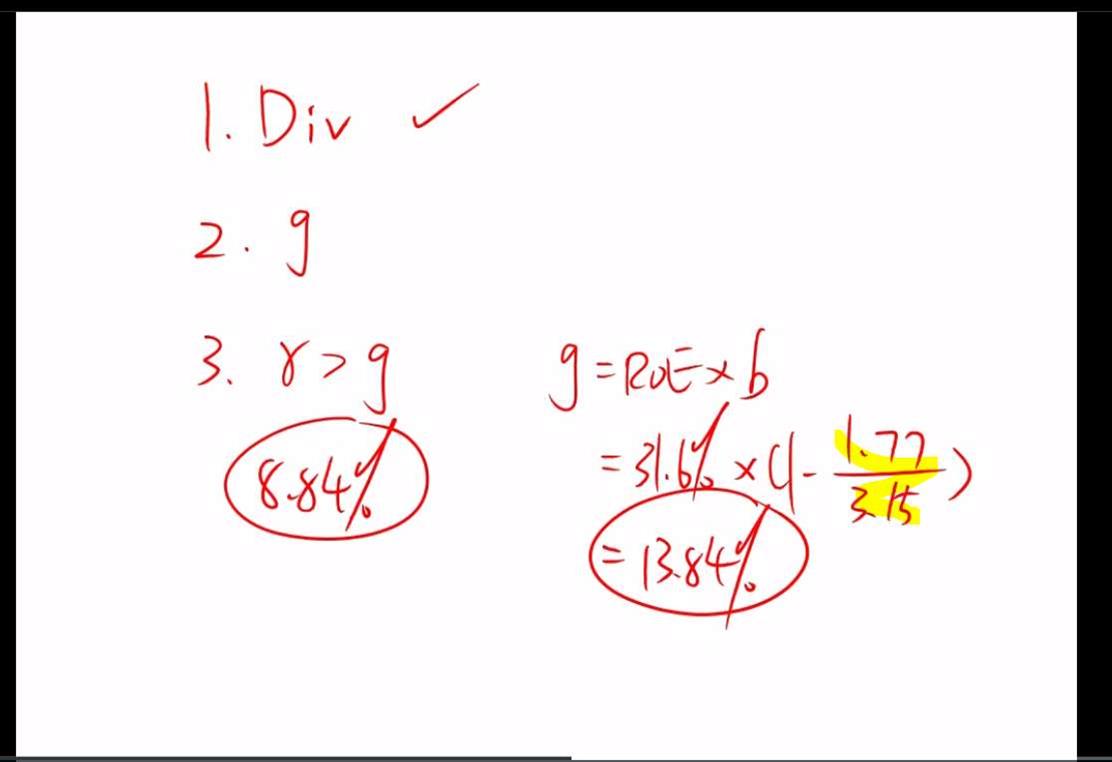 1. Div ✓
2. g
3. r > g
8.84%
g = ROE × b
= 31.6% × (1 - 1.77/3.15)
= 13.84%